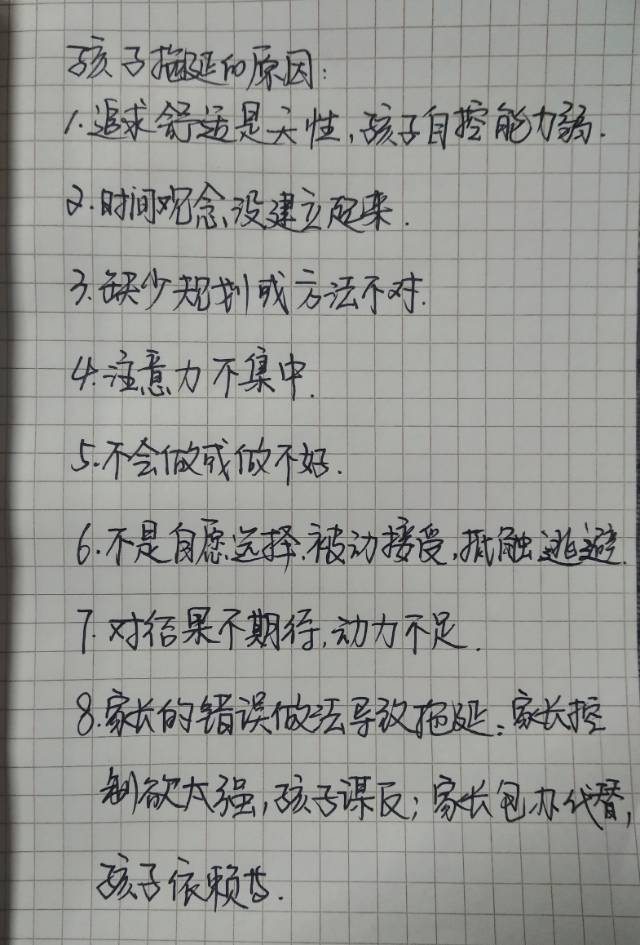 孩子拖延的原因:
1.追求舒适是天性,孩子自控能力弱.
2.时间观念没建立起来.
3.缺少规划或方法不对.
4.注意力不集中.
5.不会做或做不好.
6.不是自愿选择.被动接受.抵触逃避.
7.对结果不期待,动力不足.
8.家长的错误做法导致拖延:家长控
制欲太强,孩子谋反;家长包办代替,
孩子依赖